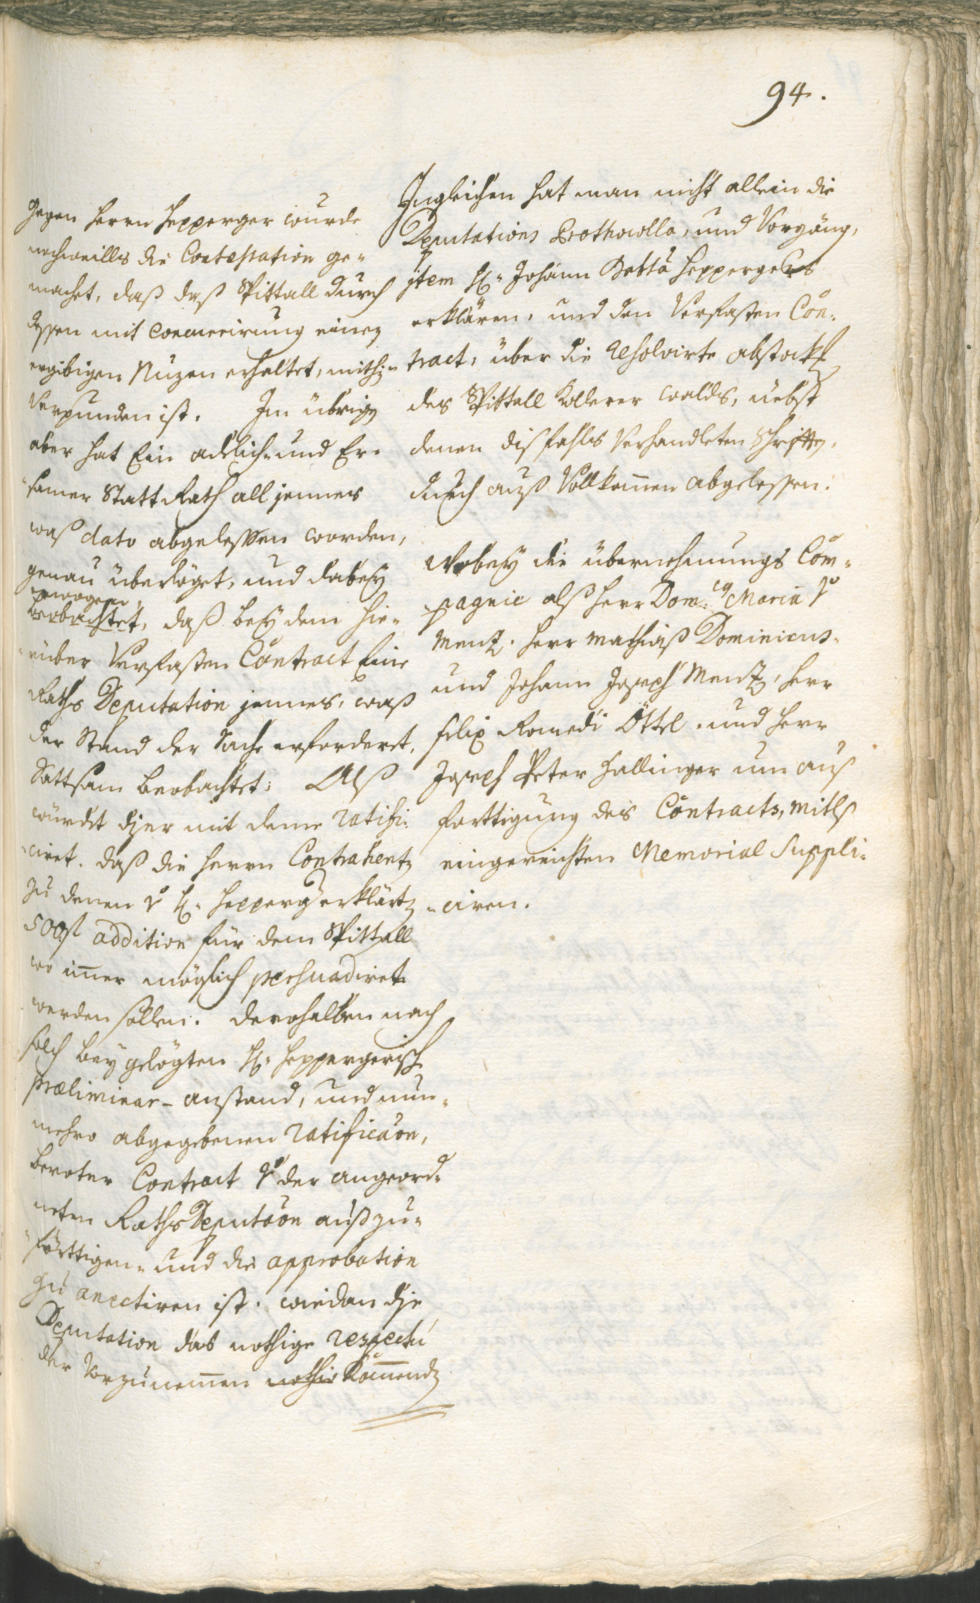 94.
gegen Herrn Hepperger wurde
nachweills die Contestation ge-
machet, daß daß Spittall durch
dessen mit concurrirung einen
ergibigen Nuzen erhaltet, mithin
verpunden ist. Im übrigen
aber hat Ein adelich- und Er-
samer Statt Rath all jennes
waß dato abgelessen worden,
genau überlöget, und dabey
erwogen
beobachtet, daß bey dem hie-
rüber verfasten Contract Eine
Raths Deputation jennes, waß
der Stand der Sache erforderet,
Sattsam beobachtet: Alß
würdet diser mit deme ratifi-
ciret. daß die Herrn Contrahenten
zu denen v H: Hepperg erklärten
500 fl addition für dem Spittall
wo imer möglich persuadiret
werden sollen. derohalben nach
solch beygelögten H: Heppergerisch
præliminar- anstand, und nun-
mehro abgegebenen ratification,
beroter Contract v der angeord-
neten Raths Deputaon außzu-
förttigen- und die approbation
zu anectiren ist. wiedan die
Deputation das nothige respectu
der vorzunemen Kommenden
Ingleichen hat man nicht allein die
Deputations Prothocolla, und Vorgäng,
item H: Johann Batta Heppergers
erklären, und den verfasten Con-
tract, über die resolvirte abstockh
des Spittall Kollerer walds, nebst
denen disfahls verhandleten Schrifften,
durchauß Vollkomen abgelessen.
Wobey die übernehmungs Com-
pagnie alß Herr Dom:co Maria v
Mentz. Herr Mathiaß Dominicus-
und Johann Joseph Mentz, Herr
Felix Romedi Öttel. und Herr
Joseph Peter Hallinger um auß
förttigung des Contracts, mitls
eingereichten Memorial Suppli-
ciren.